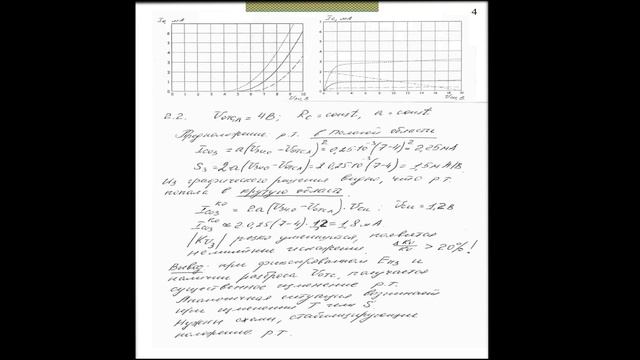 4
Ic, мА
Ic, мА
7
6
5
4
3
2
1
0
0 1 2 3 4 5 6 7 8 9 10
Uзи, В
0 2 4 6 8 10 12 14 16 18 20
Uси, В
2.2. Uотсл = 4В; Rс = const, a = const.
Предположение: р.т. в пологой области
Iсо3 = a(Uзио − Uотсл)² = 0,25·10⁻³(7−4)² 2,25мА
S3 = 2a(Uзио − Uотсл) = 2·0,25·10⁻³(7−4) = 1,5мА/В
Из графического решения видно, что р.т.
попала в крутую область.
Iсо3ᴷᴼ = 2a(Uзио − Uотсл)·Uси : Uси = 1,2В
Iсо3ᴷᴼ ≈ 2·0,25(7−4)·1,2 = 1,8мА
|Ku3| резко уменьшится, появятся
нелинейные искажения ΔKu/Ku > 20%!
Вывод: при фиксированной Eпз и
наличии разброса Uотс, получается
существенное изменение р.т.
Аналогичная ситуация возникает
при изменении T или S
Нужны схемы, стабилизирующие
положение р.т.